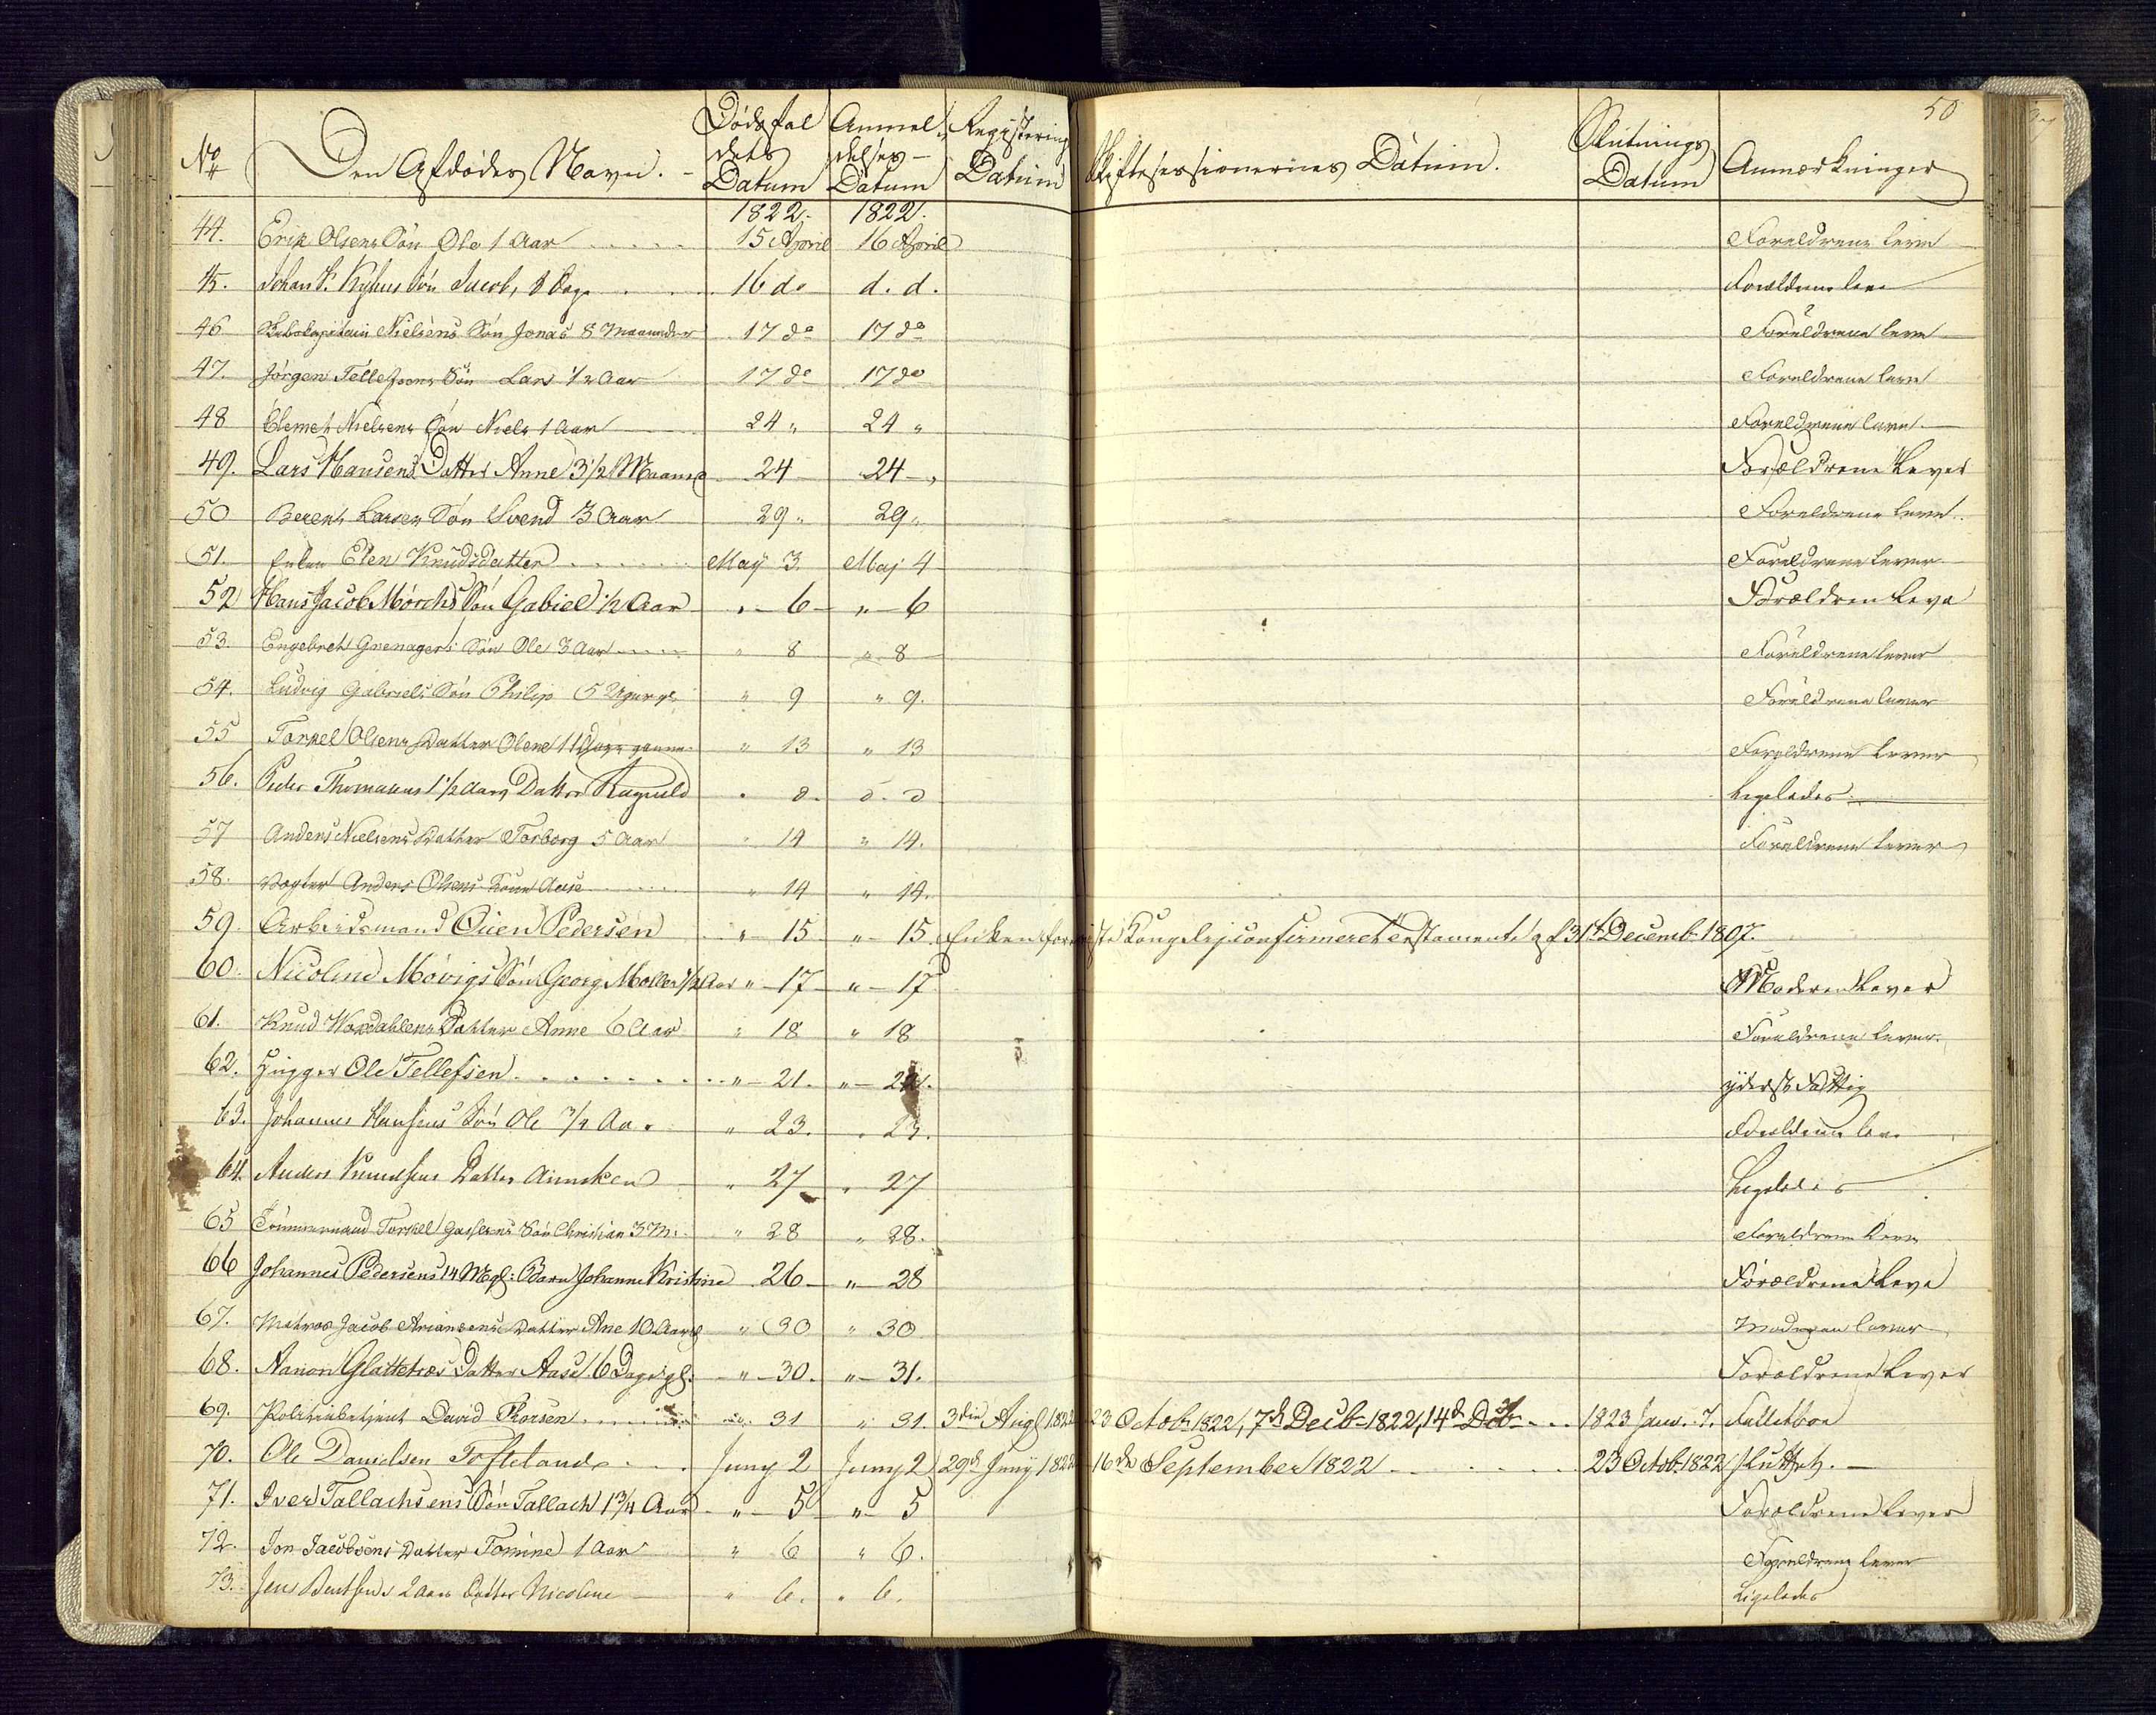 50
No Den Afdødes Navn. Dødsfaldets Datum Anmeldelses Datum Registerings Datum Skiftesessionernes Datum. Slutnings Datum Anmærkninger
1822. 1822.
44. Erik Olsens Søn Ole 1 Aar 15 April 16 April Forældrene leve
45. Johan P. Søn Jacob, 8 Dage 16 do d. d. Forældrene leve
46 Nielsens Søn Jonas 8 Maaneder 17 do 17 do Forældrene leve
47. Jørgen Tellefsens Søn Lars 1/2 Aar 17 do 17 do Forældrene leve
48 Clemet Nielsens Søn Niels 1 Aar 24 " 24 " Forældrene leve.
49. Lars Hansens Datter Anne 3 1/2 Maaned 24 24 " Forældrene Lever
50 Berent Larsens Søn Svend 3 Aar 29 " 29 " Forældrene leve.
51. Enken Elen Knudsdatter May 3. Maj 4 Forældrene lever
52 Hans Jacob Mørchs Søn Gabiel 1/2 Aar " 6 " 6 Forældren Leve
53. Engebreth Grenagers Søn Ole 3 Aar " 8 " 8 Forældrene lever
54. Ludvig Gabriels Søn Philip 5 Uger gl. " 9 " 9. Forældrene lever
55 Torkel Olsens Datter Olene 11 Dage gamm. " 13 " 13 Forældrene lever
56. Peder Thomasens 1 1/2 Aars Datter Ragnild " d. d. d Ligeledes
57 Anders Nielsens Datter Torborg 5 Aar " 14 " 14. Forældrene lever
58. Vægter Anders Olsens Kone Aase " 14 " 14.
59. Arbeidsmand Ouen Pedersen " 15 " 15. Enken foreviste Kongelig confirmeret Testamente af 31t Decemb. 1807.
60. Nicoline Møvigs Søn Georg Møller 1/2 Aar " 17 " 17 Moderen Lever
61. Knud Datter Anne 6 Aar " 18 " 18 Forældrene lever.
62. Hugger Ole Tellefsen " 21. " 22. yderst Fattig
63. Johannes Hansens Søn Ole 3/4 Aa. " 23. " 23. Forældrene leve
64. Anders Knudsens Datter Annken " 27 " 27 Ligeledes
65 Tømmermand Torkel Søn Christian 3 M. " 28 " 28. Forældrene leve
66 Johannes Pedersens 14 Mgl: Barn Johanne Kristine 26 " 28 Forældrene Leve
67. Matros Jacob Ariansens Datter Ane 10 Aar gl " 30 " 30 Moderen lever
68. Aanon Glattetræs Datter Aase 6 Dage gl. " 30. " 31. Forældrene Lever
69. Politiebetjent David Thorsen " 31 " 31. 3die Aug 1822 23 Octobr 1822, 7de Decbr 1822, 14de Do 1823 Janr. 7. Fallitboe
70. Ole Danielsen Tofteland Juny 2 Juny 2 29de Juny 1822 16de September 1822 23 Octob. 1822 sluttet.
71. Iver Tallachsens Søn Tallach 1 3/4 Aar " 5 " 5 Forældrene Lever
72. Jon Jacobsens Datter Tomine 1 Aar " 6 " 6. Forældrene lever
73. Jens Bentsens 2 Aars Datter Nicoline " 6. " 6. Ligeledes